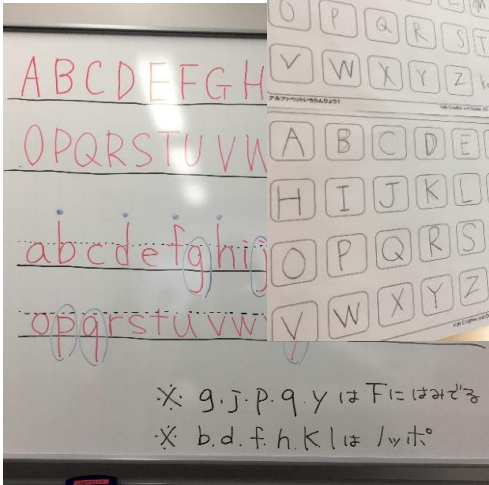 ABCDEFGH
OPQRSTUVW
abcdefghij
opqrstuvw
y
※ g.j.p.q.yは下にはみでる
※ b.d.f.h.k.lはノッポ
O P Q R S T
V W X Y Z
A B C D E
H I J K L
O P Q R S
V W X Y Z